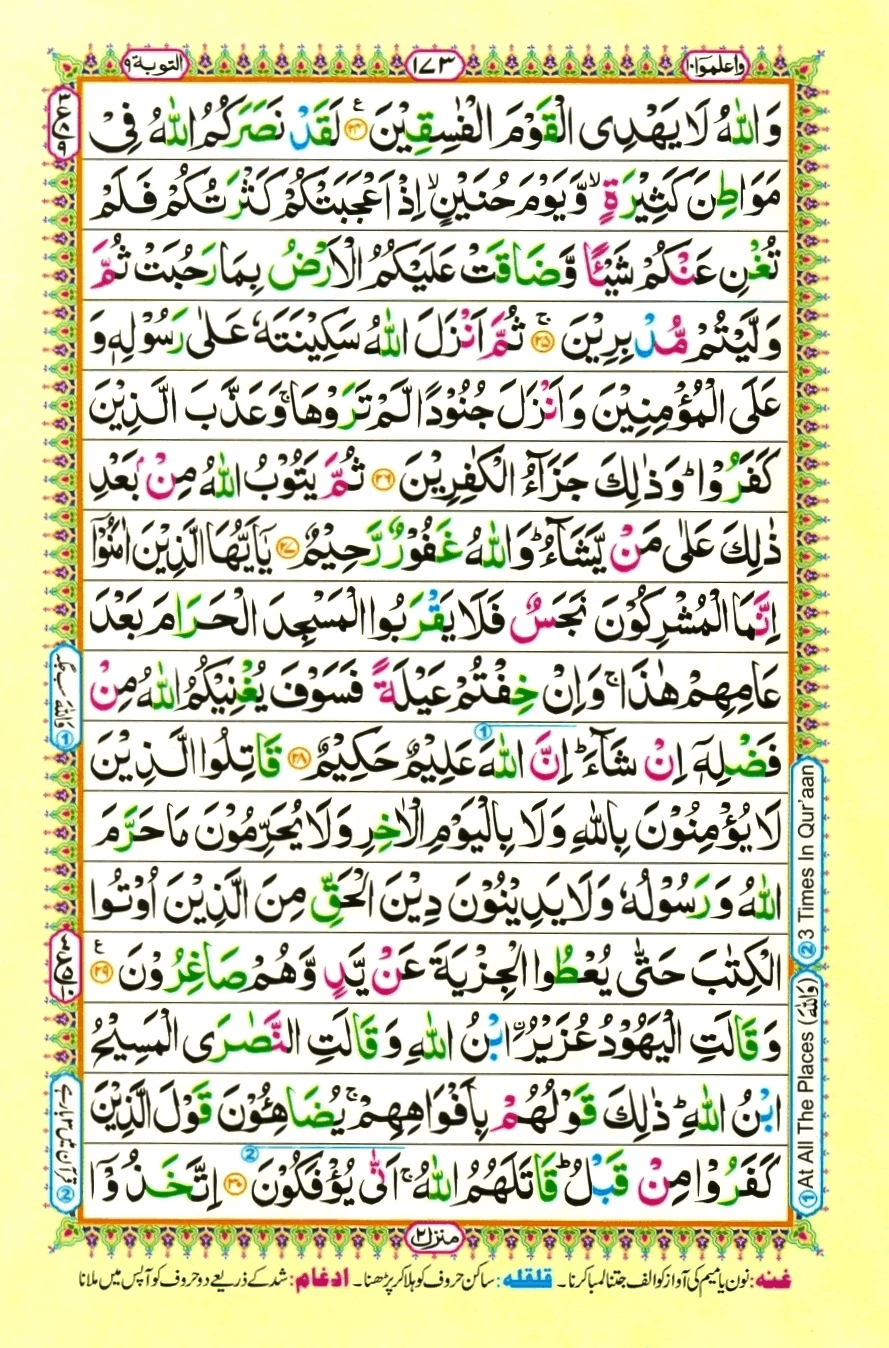 التوبة ٩
١٧٣
واعلموا ١٠
وَاللّٰهُ لَا يَهْدِى الْقَوْمَ الْفٰسِقِيْنَ ۞٢٤ ع لَقَدْ نَصَرَكُمُ اللّٰهُ فِىْ
مَوَاطِنَ كَثِيْرَةٍ ۙ وَّيَوْمَ حُنَيْنٍ ۙ اِذْ اَعْجَبَتْكُمْ كَثْرَتُكُمْ فَلَمْ
تُغْنِ عَنْكُمْ شَيْـًٔا وَّضَاقَتْ عَلَيْكُمُ الْاَرْضُ بِمَا رَحُبَتْ ثُمَّ
وَلَّيْتُمْ مُّدْبِرِيْنَ ۚ ۞٢٥ ثُمَّ اَنْزَلَ اللّٰهُ سَكِيْنَتَهٗ عَلٰى رَسُوْلِهٖ وَ
عَلَى الْمُؤْمِنِيْنَ وَاَنْزَلَ جُنُوْدًا لَّمْ تَرَوْهَا ۚ وَعَذَّبَ الَّذِيْنَ
كَفَرُوْا ؕ وَذٰلِكَ جَزَآءُ الْكٰفِرِيْنَ ۞٢٦ ثُمَّ يَتُوْبُ اللّٰهُ مِنْۢ بَعْدِ
ذٰلِكَ عَلٰى مَنْ يَّشَآءُ ؕ وَاللّٰهُ غَفُوْرٌ رَّحِيْمٌ ۞٢٧ يٰۤاَيُّهَا الَّذِيْنَ اٰمَنُوْۤا
اِنَّمَا الْمُشْرِكُوْنَ نَجَسٌ فَلَا يَقْرَبُوا الْمَسْجِدَ الْحَرَامَ بَعْدَ
عَامِهِمْ هٰذَا ۚ وَاِنْ خِفْتُمْ عَيْلَةً فَسَوْفَ يُغْنِيْكُمُ اللّٰهُ مِنْ
فَضْلِهٖۤ اِنْ شَآءَ ؕ اِنَّ اللّٰهَ عَلِيْمٌ حَكِيْمٌ ۞٢٨ قَاتِلُوا الَّذِيْنَ
لَا يُؤْمِنُوْنَ بِاللّٰهِ وَلَا بِالْيَوْمِ الْاٰخِرِ وَلَا يُحَرِّمُوْنَ مَا حَرَّمَ
اللّٰهُ وَرَسُوْلُهٗ وَلَا يَدِيْنُوْنَ دِيْنَ الْحَقِّ مِنَ الَّذِيْنَ اُوْتُوا
الْكِتٰبَ حَتّٰى يُعْطُوا الْجِزْيَةَ عَنْ يَّدٍ وَّهُمْ صَاغِرُوْنَ ۞٢٩ ع
وَقَالَتِ الْيَهُوْدُ عُزَيْرُ ۨابْنُ اللّٰهِ وَقَالَتِ النَّصٰرَى الْمَسِيْحُ
ابْنُ اللّٰهِ ؕ ذٰلِكَ قَوْلُهُمْ بِاَفْوَاهِهِمْ ۚ يُضَاهِئُوْنَ قَوْلَ الَّذِيْنَ
كَفَرُوْا مِنْ قَبْلُ ؕ قَاتَلَهُمُ اللّٰهُ ۚ اَنّٰى يُؤْفَكُوْنَ ۞٣٠ اِتَّخَذُوْۤا
① وَاللّٰهُ سب جگہ
② قرآن میں ٣ بار ہے
② 3 Times In Qur'aan
① At All The Places (وَاللّٰهُ)
منزل ٢
غنه: نون یا میم کی آواز کو الف جتنا لمبا کرنا۔ قلقله: ساکن حروف کو ہلا کر پڑھنا۔ ادغام: شد کے ذریعے دو حروف کو آپس میں ملانا